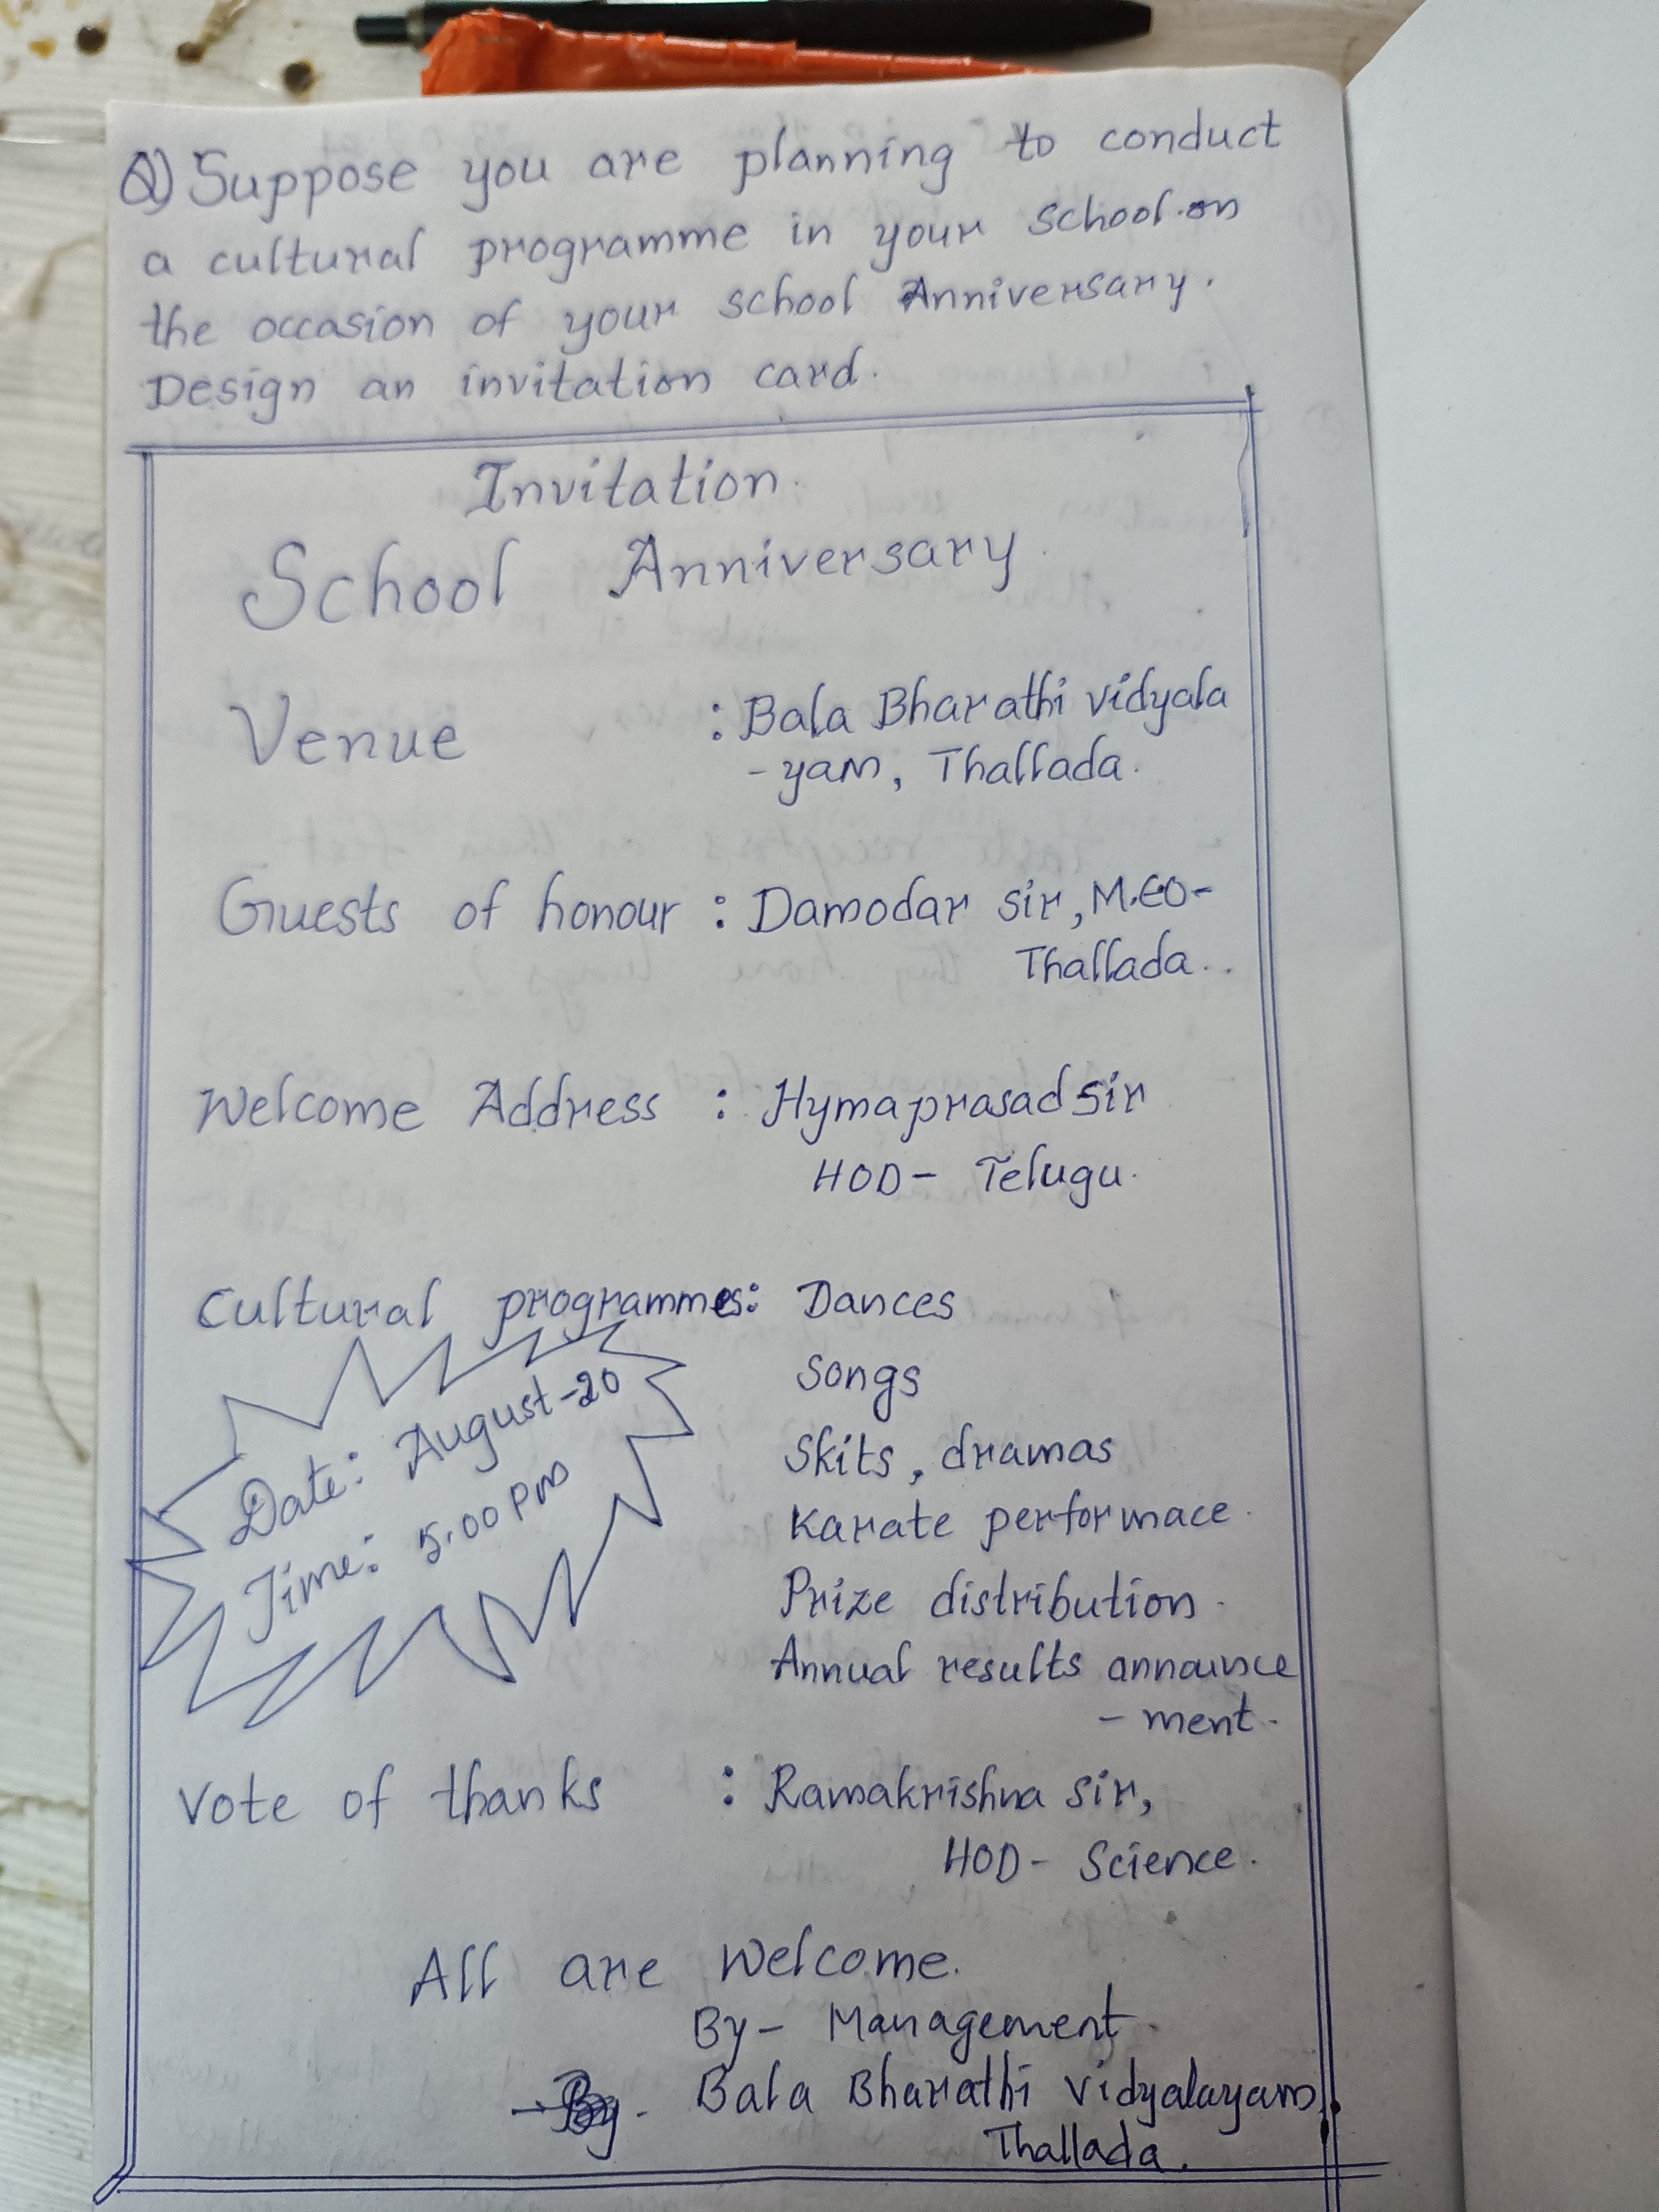 Q) Suppose you are planning to conduct
a cultural programme in your school on
the occasion of your school Anniversary.
Design an invitation card.
Invitation.
School Anniversary.
Venue : Bala Bharathi vidyala
- yam, Thallada.
Guests of honour : Damodar sir, M.EO-
Thallada..
Welcome Address : Hymaprasad sir
HOD - Telugu.
Cultural programmes: Dances
Songs
Skits, dramas
Karate performace.
Prize distribution.
Annual results announce
- ment.
Date: August-20
Time: 5.00 pm
Vote of thanks : Ramakrishna sir,
HOD - Science.
All are welcome.
By - Management.
Bala Bharathi Vidyalayam,
Thallada.